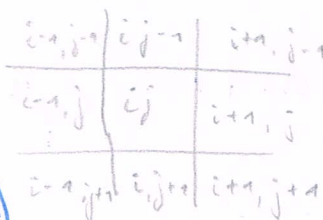 i-1, j-1 i j-1 i+1, j-1
i-1, j ij i+1, j
i-1, j+1 i, j+1 i+1, j+1